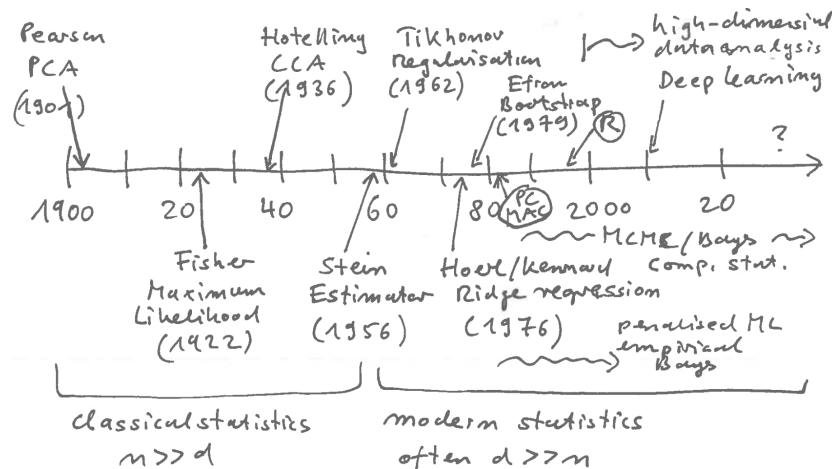 Pearson
PCA
(1901)
Hotelling
CCA
(1936)
Tikhonov
Regularisation
(1962)
Efron
Bootstrap
(1979)
R
high-dimensional
data analysis
Deep learning
?
1900
20
40
60
80
2000
20
PC
MAC
Fisher
Maximum
Likelihood
(1922)
Stein
Estimator
(1956)
Hoerl/Kennard
Ridge regression
(1976)
MCMC/Bays
Comp. stat.
penalised ML
empirical
Bays
classical statistics
n>>d
modern statistics
often d>>n